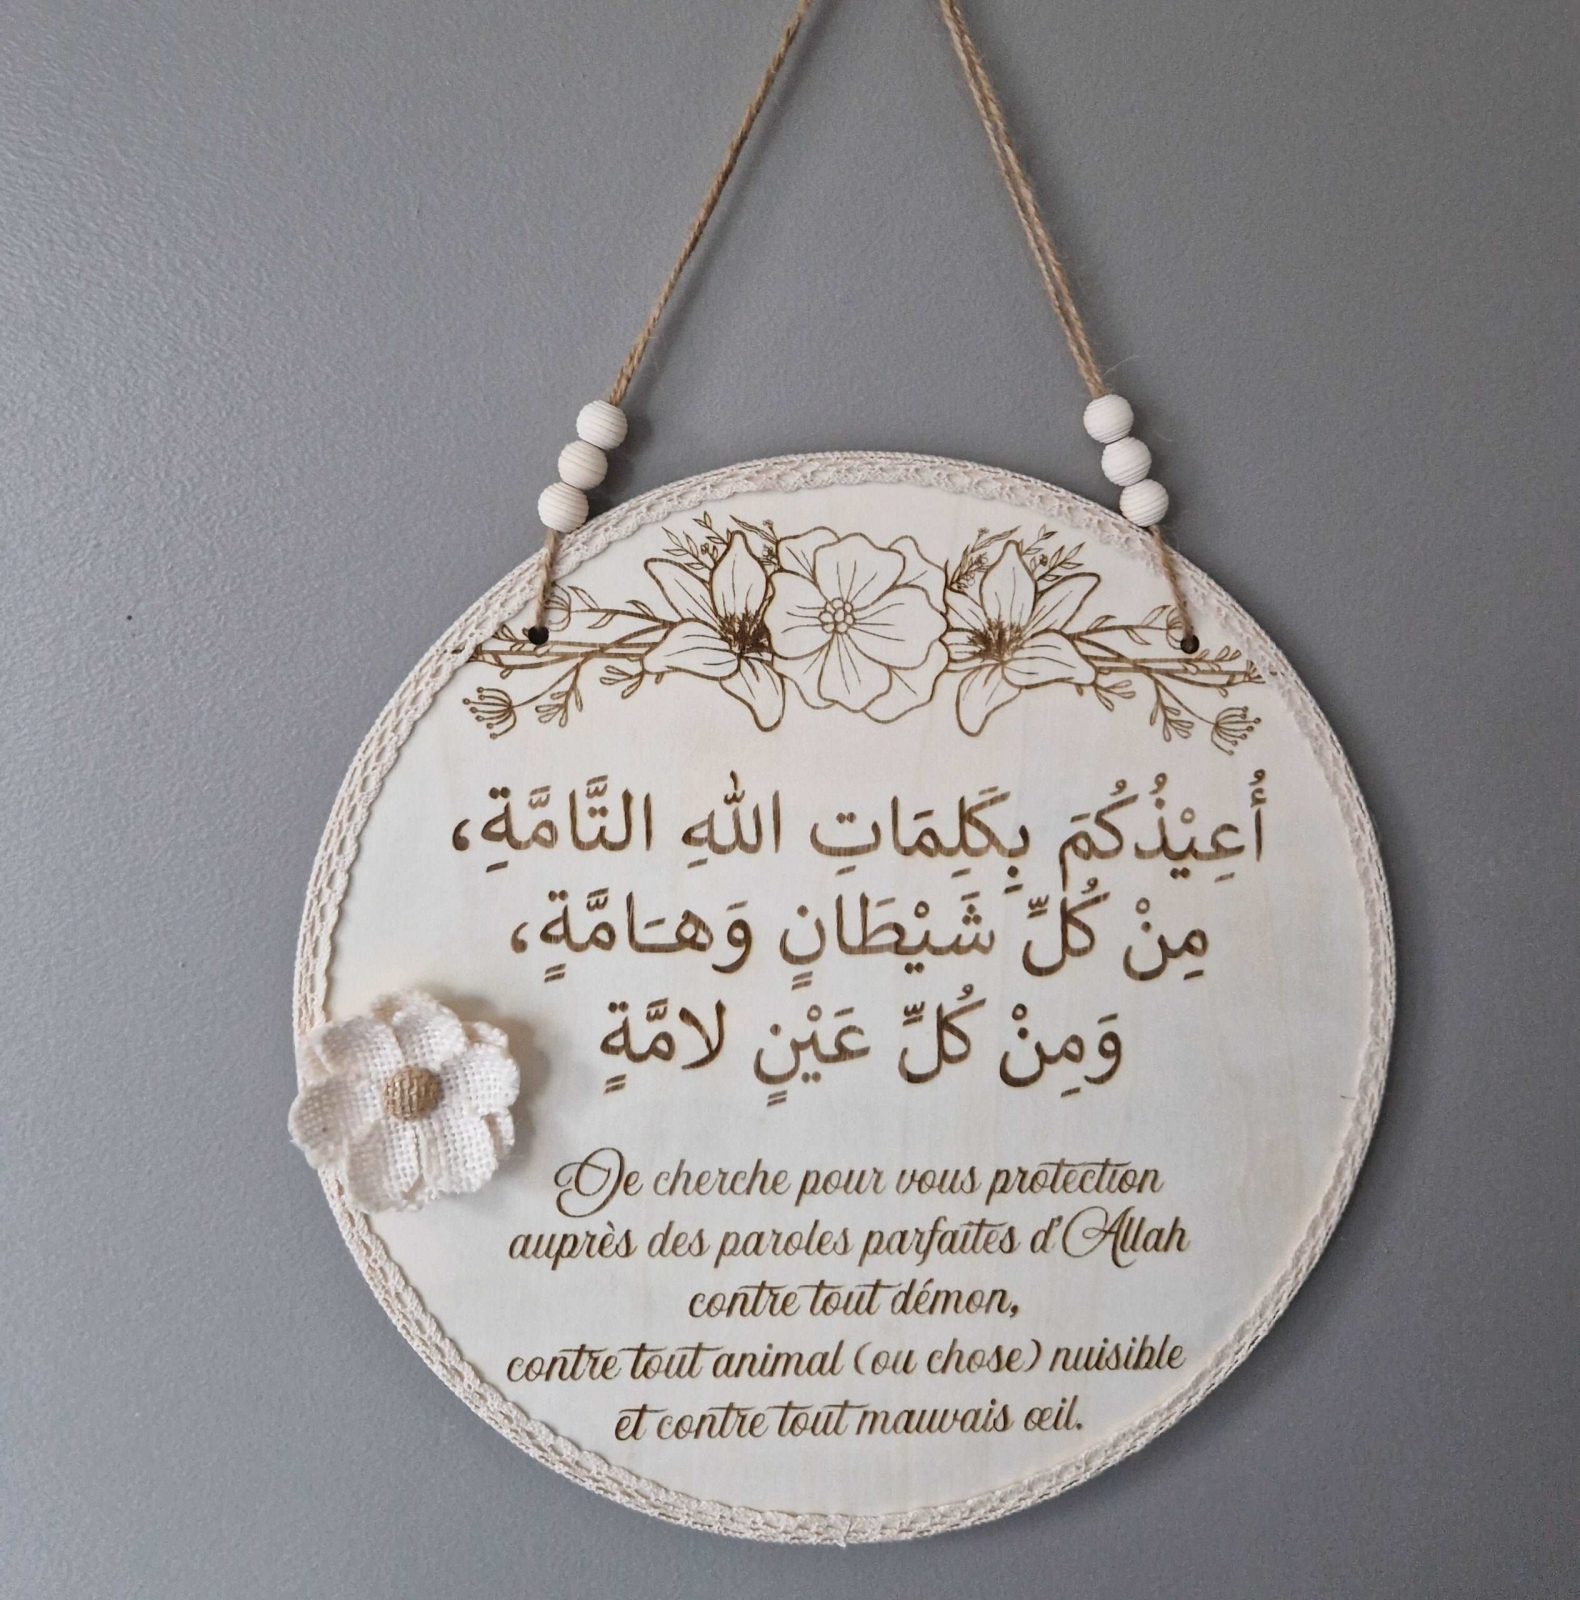 أُعِيْذُكُمَ بِكَلِمَاتِ اللهِ التَّامَّةِ،
مِنْ كُلِّ شَيْطَانٍ وَهَامَّةٍ،
وَمِنْ كُلِّ عَيْنٍ لامَّةٍ
Je cherche pour vous protection
auprès des paroles parfaites d'Allah
contre tout démon,
contre tout animal (ou chose) nuisible
et contre tout mauvais œil.